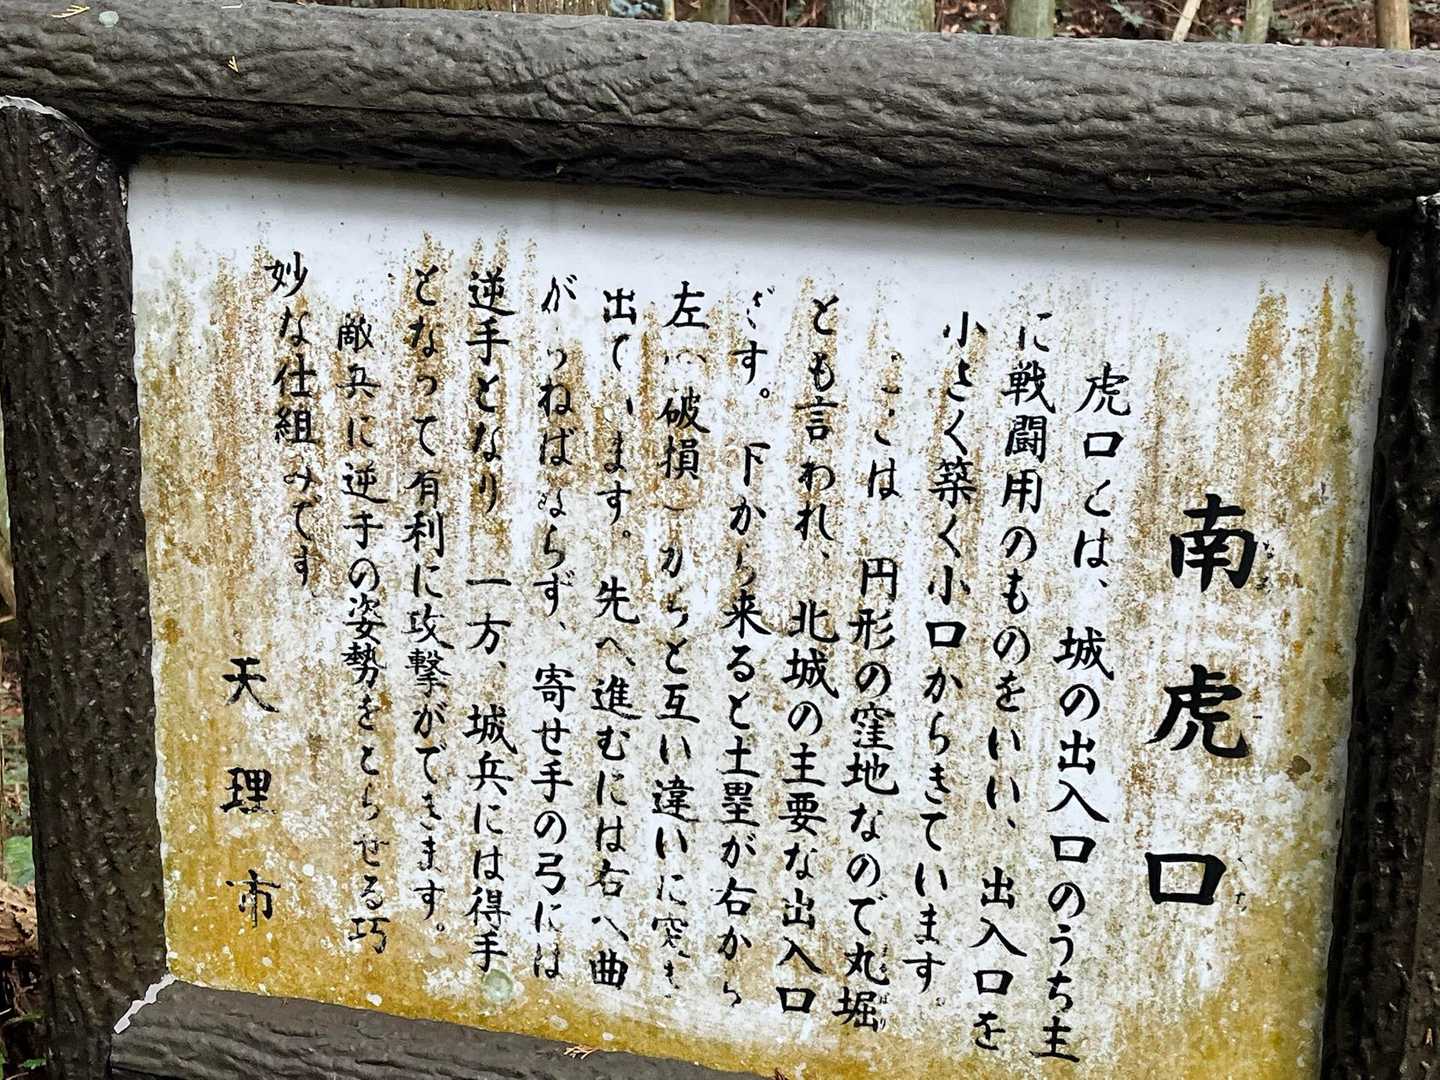 南虎口
虎口とは、城の出入口のうち主
に戦闘用のものをいい、出入口を
小さく築く小口からきています。
ここは 円形の窪地なので丸堀
とも言われ、北城の主要な出入口
です。下から来ると土塁が右から
左(破損)からと互い違いに突き
出ています。先へ進むには右へ曲
がらねばならず、寄せ手の弓には
逆手となり 一方、城兵には得手
となって有利に攻撃ができます。
敵兵に逆手の姿勢をとらせる巧
妙な仕組みです
天理市